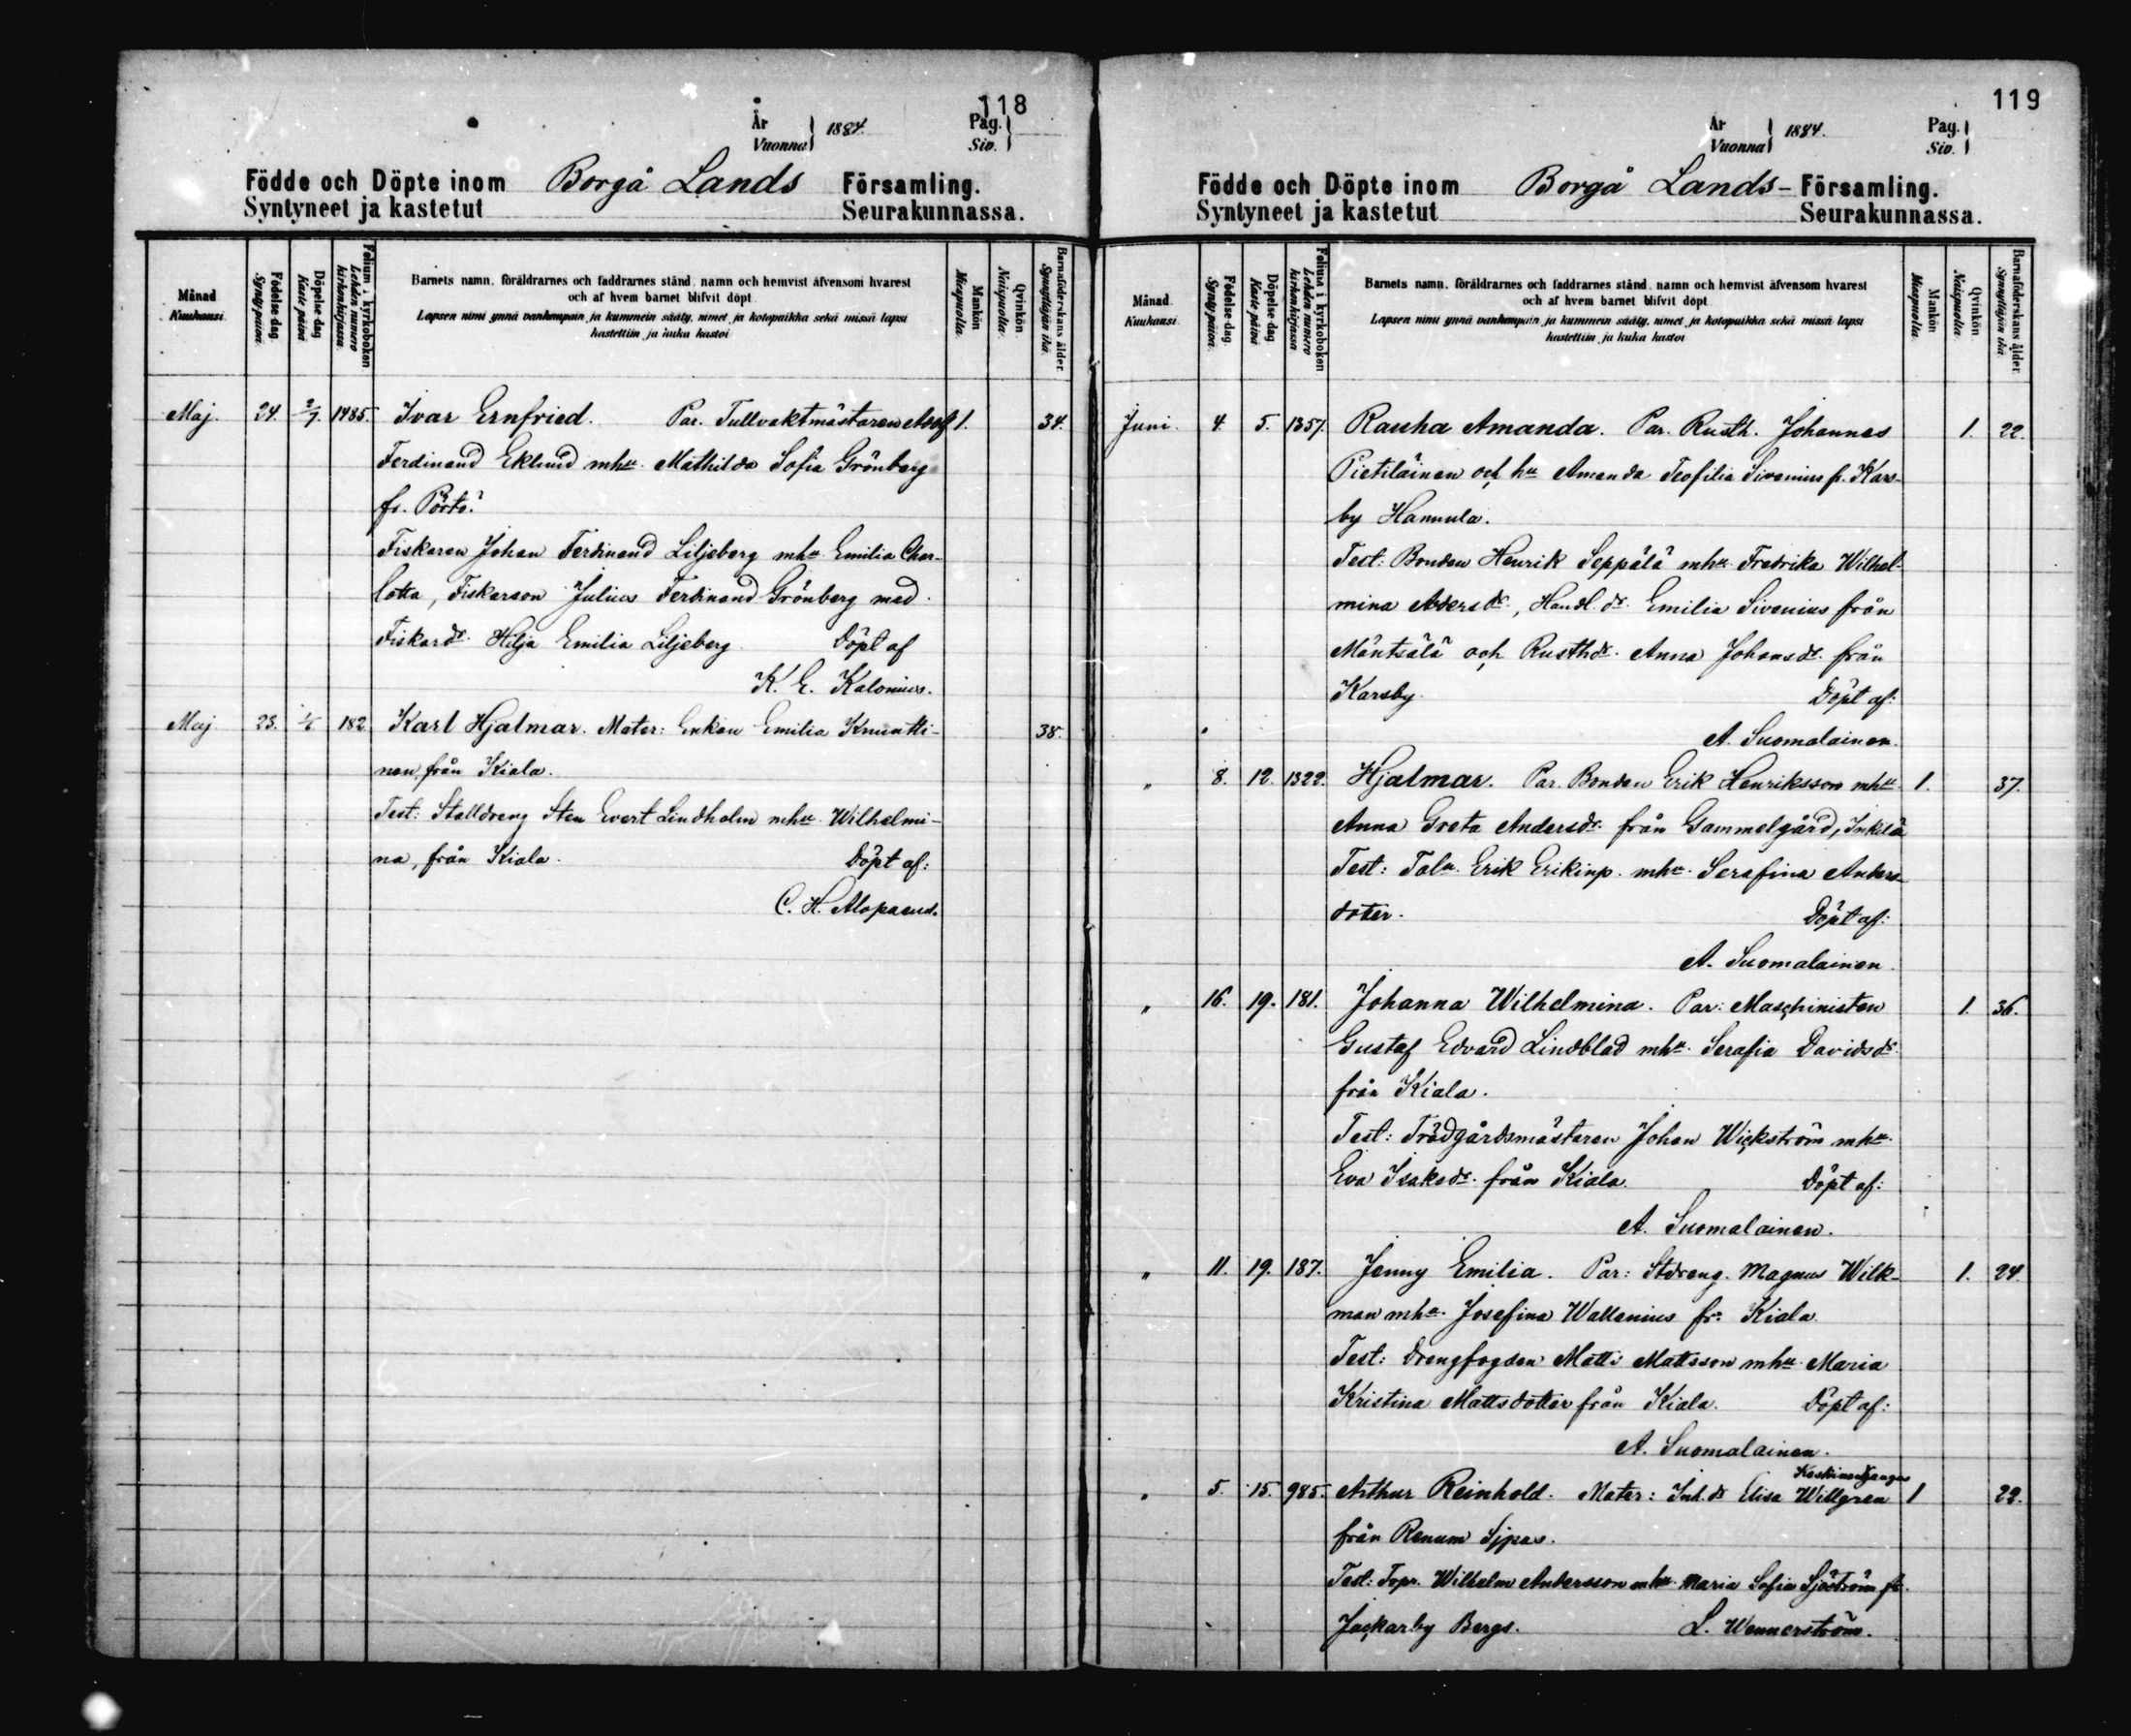 118
År
Vuonna
1884.
Pag.
Siv.
Födde och Döpte inom Borgå Lands Församling.
Syntyneet ja kastetut Seurakunnassa.
Månad
Kuukausi
Födelse-dag
Synty-päivä.
Döpelse-dag
Kaste-päivä
Folium i kyrkoboken
Lehden numero
kirkonkirjassa.
Barnets namn, föräldrarnes och faddrarnes stånd, namn och hemvist äfvensom hvarest
och af hvem barnet blifvit döpt.
Lapsen nimi ynnä vanhempain ja kummein sääty, nimet ja kotopaikka sekä missä lapsi
kastettiin ja kuka kastoi
Mankön
Miespuolia.
Qvinkön.
Naispuolia.
Barnaföderskans ålder.
Synnyttäjän ikä.
Maj. 24. 2/7. 1485. Ivar Ernfried. Par. Tullvaktmästaren Adolf 1. 34.
Ferdinand Eklund mhu. Mathilda Sofia Grönberg
fr. Pörtö.
Fiskaren Johan Ferdinand Liljeberg mhu Emilia Char-
lotta, Fiskareson Julius Ferdinand Grönberg med
Fiskardr. Hilja Emilia Liljeberg Döpt af
K. E. Kalonius.
Maj 23. 182. Karl Hjalmar. Mater: Enkan Emilia Knuutti- 38.
nen från Kiala.
Test: Stalldreng Sten Evert Lindholm mhu Wilhelmi-
na, från Kiala. Döpt af:
C. H. Alopaeus.
119
År
Vuonna
1884.
Pag.
Siv.
Födde och Döpte inom Borgå Lands- Församling.
Syntyneet ja kastetut Seurakunnassa.
Månad.
Kuukausi.
Födelse-dag.
Synty-päivä.
Döpelse-dag
Kaste-päivä
Folium i kyrkoboken
Lehden numero
kirkonkirjassa
Barnets namn, föräldrarnes och faddrarnes stånd, namn och hemvist äfvensom hvarest
och af hvem barnet blifvit döpt.
Lapsen nimi ynnä vanhempain ja kummein sääty, nimet ja kotopaikka sekä missä lapsi
kastettiin ja kuka kastoi
Mankön
Miespuolia.
Qvinkön.
Naispuolia
Barnaföderskans ålder.
Synnyttäjän ikä.
Juni. 4. 5. 1357. Rauha Amanda. Par. Rusth. Johannes 1. 22.
Pietiläinen och hu Amanda Teofilia Sivenius fr. Kars-
by Hannula.
Test: Bonden Henrik Seppälä mhu Fredrika Wilhel-
mina Andersdr., Handl. dr. Emilia Sivenius från
Mäntsälä och Rusthdr. Anna Johansdr. från
Karsby. Döpt af:
A. Suomalainen.
" 8. 12. 1322. Hjalmar. Par. Bonden Erik Henriksson mhu 1. 37.
Anna Greta Andersdr. från Gammelgård, Inkilä
Test: Erik mhu. Serafina Anders-
dotter. Döpt af:
A. Suomalainen.
" 16. 19. 181. Johanna Wilhelmina. Par: Maschinisten 1. 36.
Gustaf Edvard Lindblad mhu. Serafia Davidsdr.
från Kiala.
Test: Trädgårdsmästaren Johan Wickström mhu.
Eva Isaksdr. från Kiala. Döpt af:
A. Suomalainen.
" 11. 19. 187. Jenny Emilia. Par: Stdreng. Magnus Wilk- 1. 24.
man mhu. Josefina Wallenius fr. Kiala.
Test: Drengfogden Matts Mattsson mhu. Maria
Kristina Mattsdotter från Kiala. Döpt af:
A. Suomalainen.
" 5. 15. 985. Arthur Reinhold. Mater: Inh. dr Elisa Willgren 1 22.
från Renum
Test: Wilhelm Andersson mhu. Maria Sofia Sjöström fr.
Jackarby Bergs. L. Wennerström.